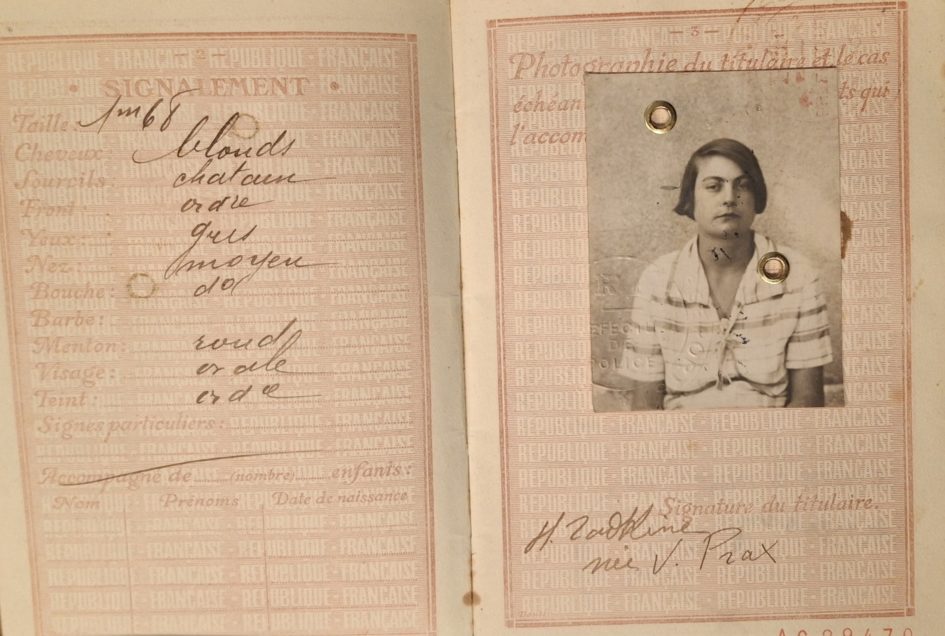 — 2 —
SIGNALEMENT
Taille: 1m68
Cheveux: blonds
Sourcils: chatain
Front: ordre
Yeux: gris
Nez: moyen
Bouche: do
Barbe:
Menton: rond
Visage: ovale
Teint: ordre
Signes particuliers:
Accompagné de (nombre) enfants:
Nom Prénoms Date de naissance
— 3 —
Photographie du titulaire et le cas
échéan ts qui
l'accom
POLICE
Signature du titulaire.
H. Zadkine
née V. Prax